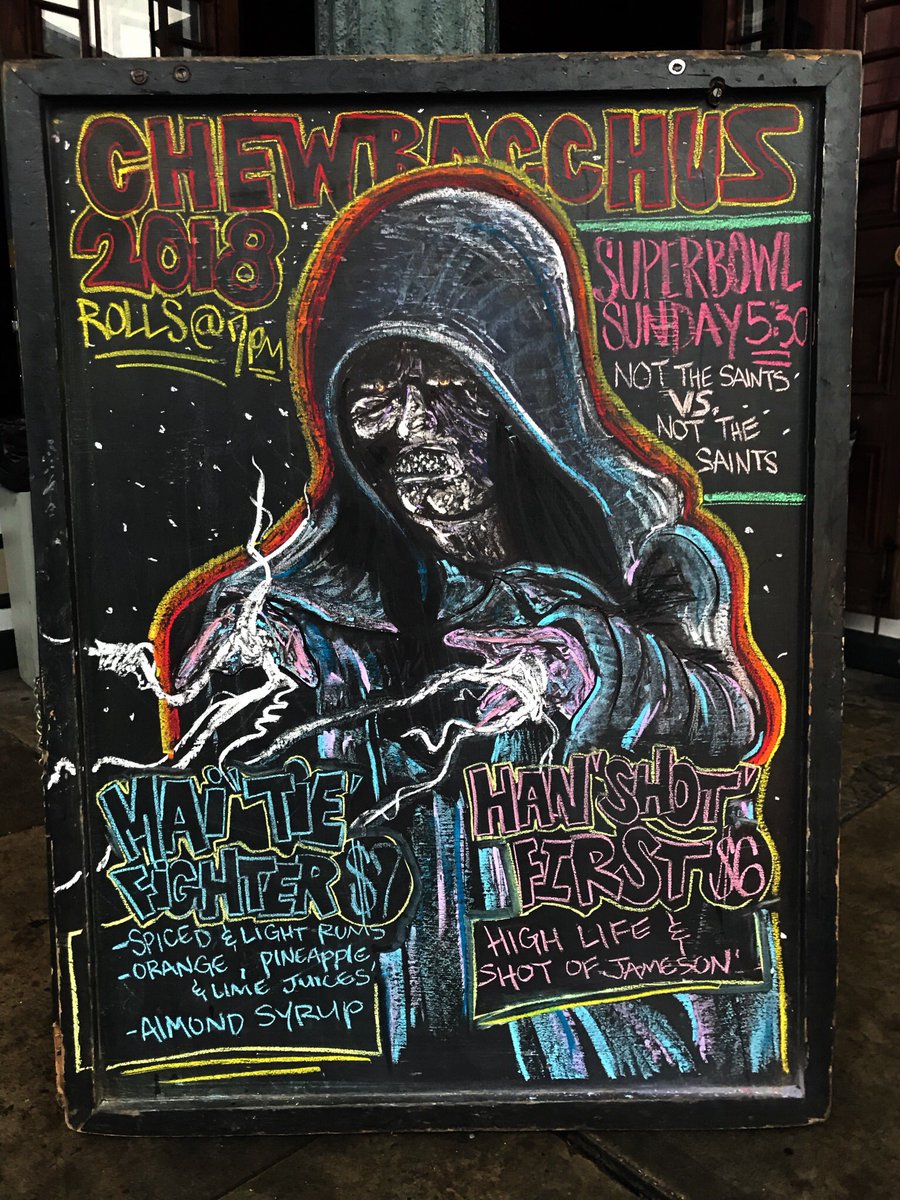 CHEWBACCHUS
2018
ROLLS@7PM
SUPERBOWL
SUNDAY 5:30
NOT THE SAINTS
VS.
NOT THE
SAINTS
MAI 'TIE'
FIGHTER $7
-SPICED & LIGHT RUMS
-ORANGE, PINEAPPLE,
& LIME JUICES
-AlMOND SYRUP
HAN 'SHOT'
FIRST $6
HIGH LIFE &
SHOT OF JAMESON